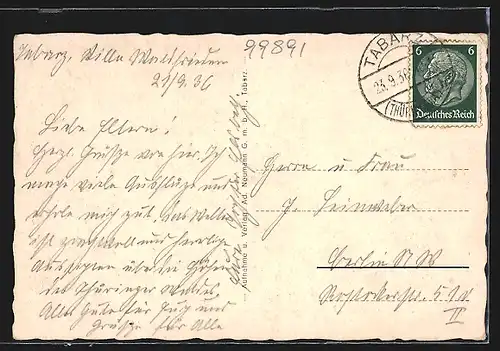 Tabarz, Villa Waldfrieden
21/9.36
99891
TABARZ
23.9.36
(THÜR
6 6
Deutsches Reich
Liebe Eltern!
Herzl. Grüsze von hier. Ich
mache viele Ausflüge und
erhole mich gut. Das Wetter
ist prachtvoll und herrlich
über die Höhen
des Thüringer Waldes.
Alles Gute für Euch und
Grüsze für Alle
Aufnahme u. Verlag: Ad. Neumann G. m. b. H., Tabarz
Herrn u Frau
J. Leinweber
Berlin N W
Rostockerstr. 5
II